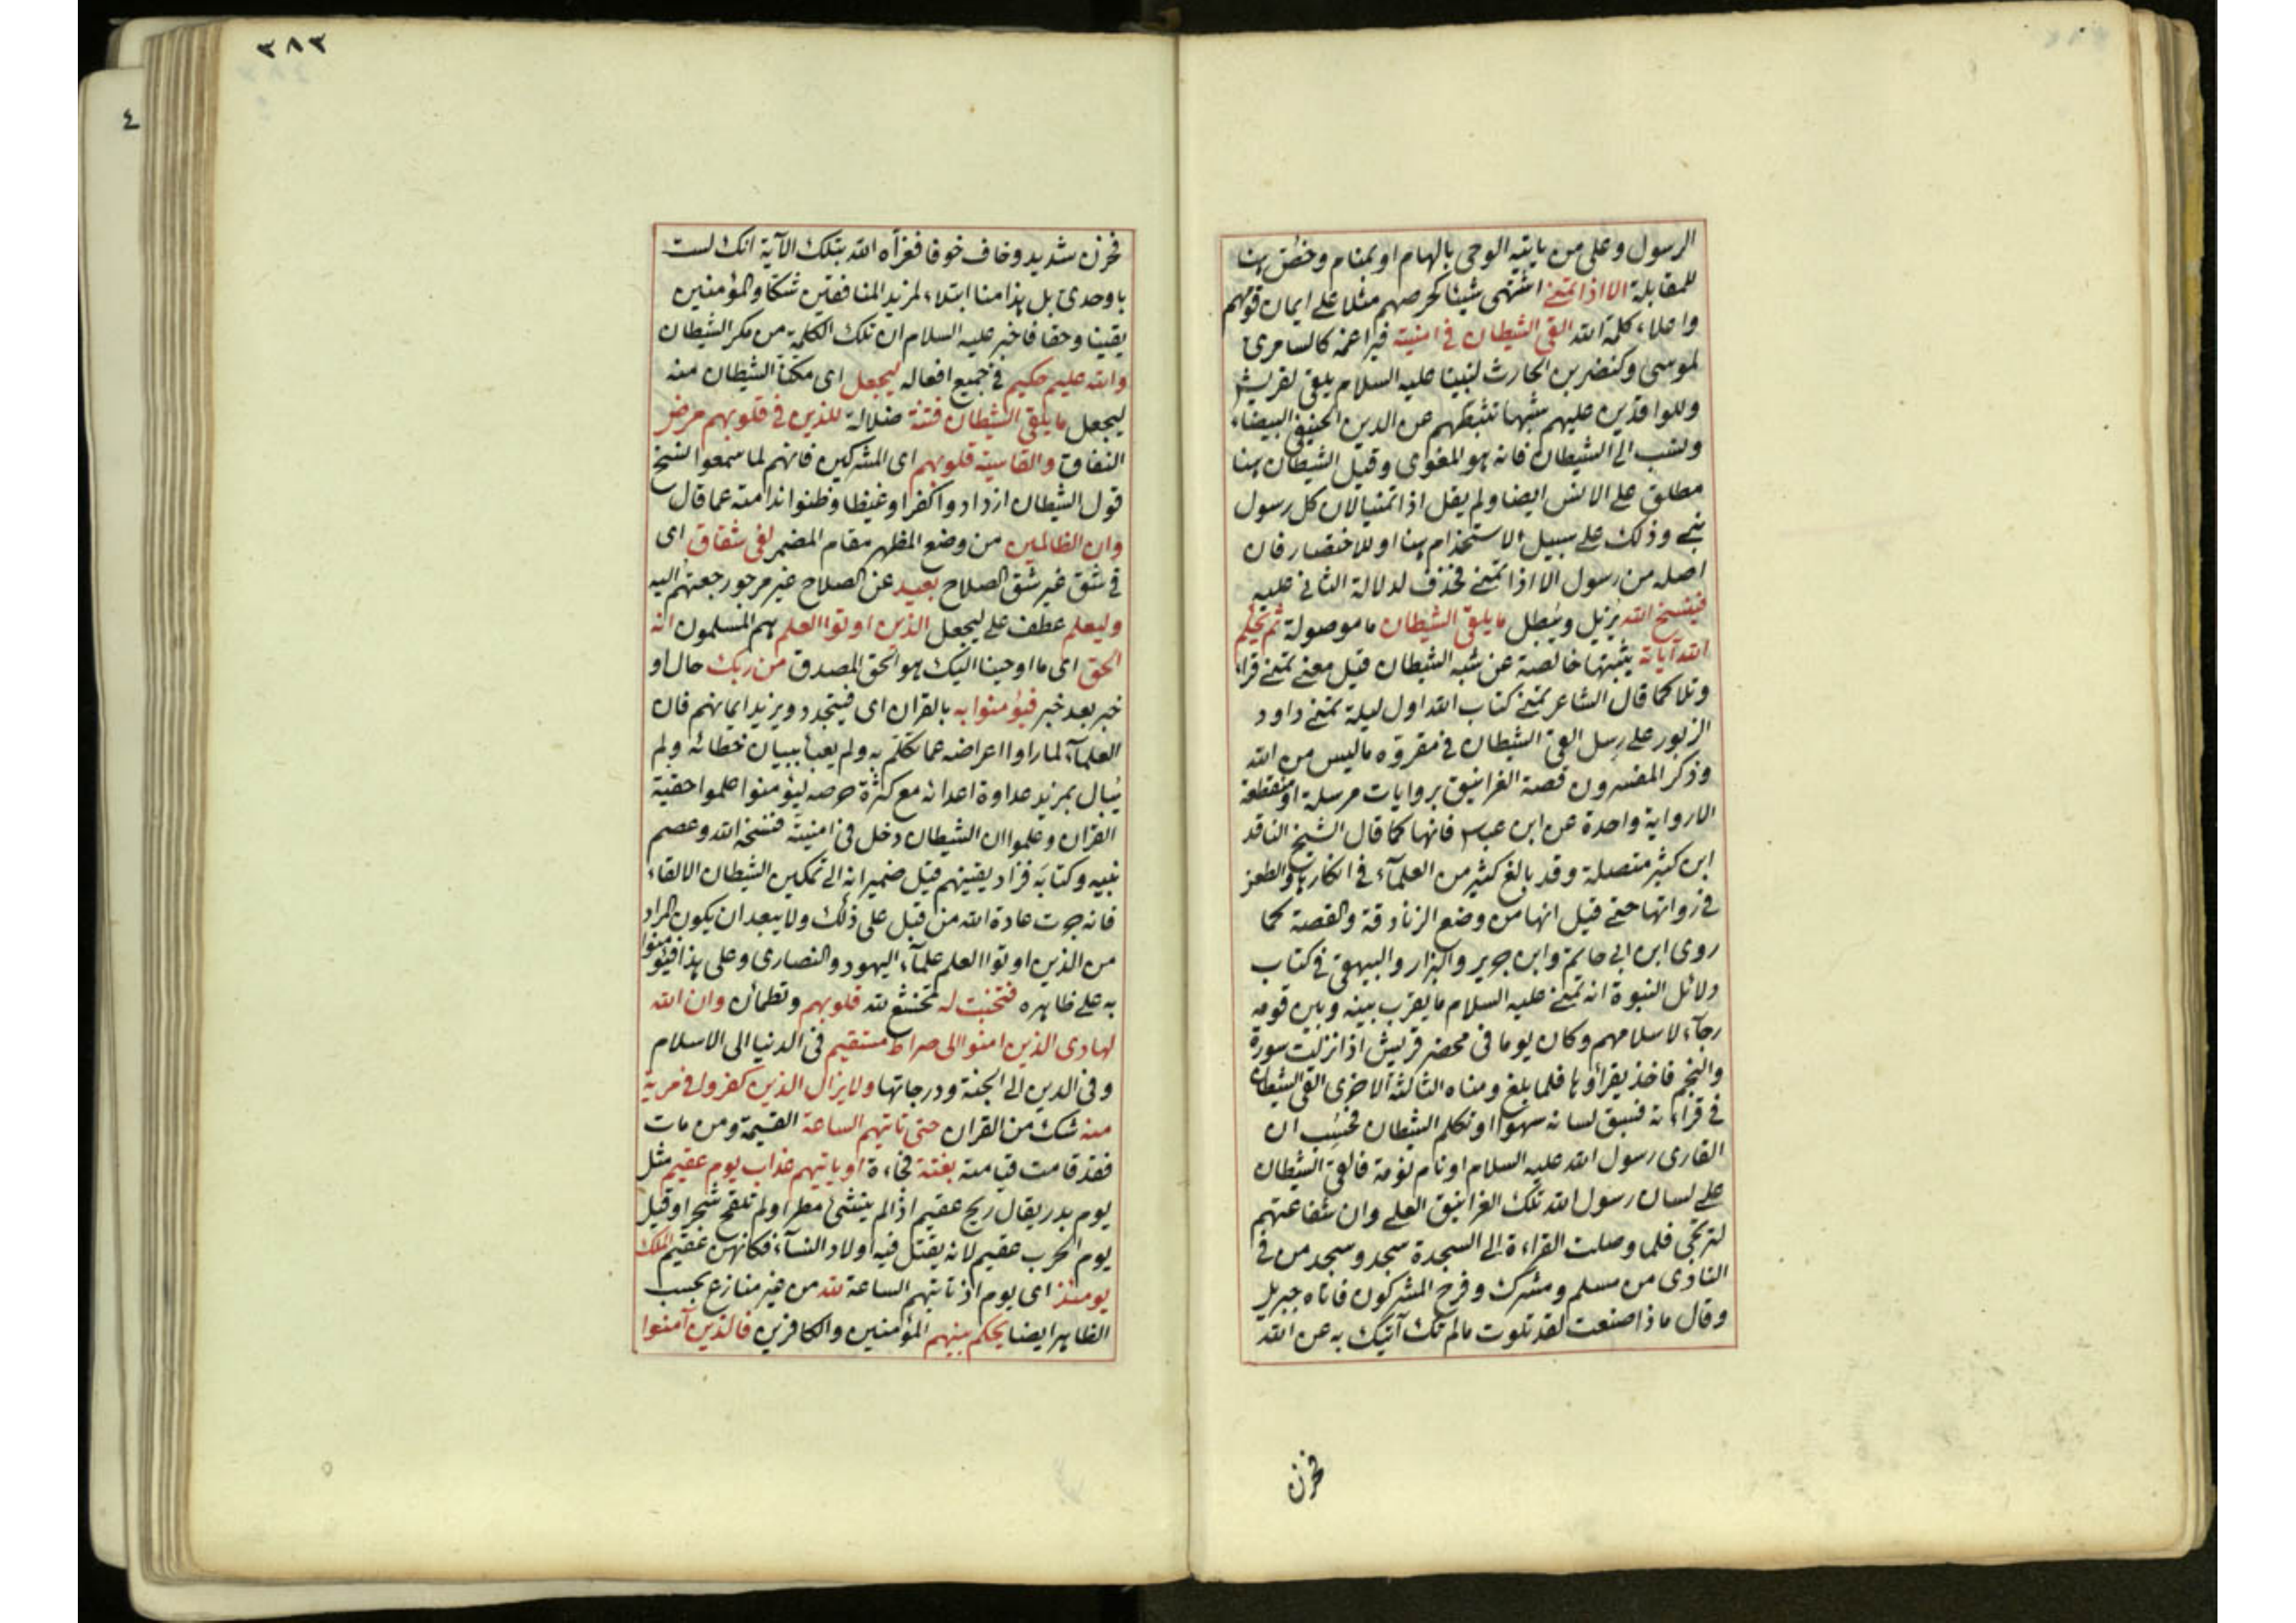 الرسول وعلى من ياتيه الوحى بالهام او بمنام وخص هنا
للمقابلة الا اذا تمنى اشتهى شيئا كحرصهم مثلا على ايمان قومهم
واعلاء كلمة الله القى الشيطان فى امنيته فيراغمه كالسامرى
لموسى وكنضر بن الحارث لنبينا عليه السلام يلقى لقريش
وللوافدين عليهم شبها تثبطهم عن الدين الحنيفى البيضاء
ونسب الى الشيطان فانه هو المغوى وقيل الشيطان هنا
مطلق على الانس ايضا ولم يقل اذا تمنيا لان كل رسول
نبى وذلك على سبيل الاستخدام هنا او للاختصار فان
اصله من رسول الا اذا تمنى فحذف لدلالة الثانى عليه
فينسخ الله يزيل ويبطل ما يلقى الشيطان ما موصولة ثم يحكم
الله آياته يثبتها خالصة عن شبه الشيطان قيل معنى تمنى قراء
وتلا كما قال الشاعر تمنى كتاب الله اول ليلة تمنى داود
الزبور على رسل القى الشيطان فى مقروه ما ليس من الله
وذكر المفسرون قصة الغرانيق بروايات مرسلة او منقطعة
الا رواية واحدة عن ابن عباس فانها كما قال الشيخ الناقد
ابن كثير متصلة وقد بالغ كثير من العلمآء فى انكارها والطعن
فى رواتها حتى قيل انها من وضع الزنادقة والقصة كما
روى ابن ابى حاتم وابن جرير والبزار والبيهقى فى كتاب
دلائل النبوة انه تمنى عليه السلام ما يقرب بينه وبين قومه
رجآء لاسلامهم وكان يوما فى محضر قريش اذ انزلت سورة
والنجم فاخذ يقرأوها فلما بلغ ومناه الثالثة الاخرى القى الشيطان
فى قراءته فسبق لسانه سهوا او تكلم الشيطان فحسب ان
القارى رسول الله عليه السلام او نام نومة فالقى الشيطان
على لسان رسول الله تلك الغرانيق العلى وان شفاعتهم
لترتجى فلما وصلت القراءة الى السجدة سجد وسجد من فى
النادى من مسلم ومشرك وفرح المشركون فاتاه جبريل
وقال ماذا صنعت لقد تلوت ما لم تك آتيك به عن الله
فحزن
٣٨٣
فحزن شديد وخاف خوفا فعزاه الله بتلك الآية انك لست
باوحدى بل هذا منا ابتلاء لمزيد المنافقين شكا والمؤمنين
يقينا وحقا فاخبر عليه السلام ان تلك الكلمة من مكر الشيطان
والله عليم حكيم فى جميع افعاله ليجعل اى مكنا الشيطان منه
ليجعل ما يلقى الشيطان فتنة ضلالة للذين فى قلوبهم مرض
النفاق والقاسية قلوبهم اى المشركين فانهم لما سمعوا نسخ
قول الشيطان ازدادوا كفرا وغيظا وظنوا ندامته عما قال
وان الظالمين من وضع المظهر مقام المضمر لفى شقاق اى
فى شق غير شق الصلاح بعيد عن الصلاح غير مرجو رجعتهم اليه
وليعلم عطف على ليجعل الذين اوتوا العلم هم المسلمون انه
الحق اى ما اوحينا اليك هو الحق المصدق من ربك حال او
خبر بعد خبر فيؤمنوا به بالقران اى فيتجدد ويزيد ايمانهم فان
العلمآء لما راوا اعراضه عما تكلم به ولم يعبا ببيان خطائه ولم
يبال بمزيد عداوة اعدائه مع كثرة حرصه ليؤمنوا علموا حقية
القران وعلموا ان الشيطان دخل فى امنيته فنسخه الله وعصم
نبيه وكتابه فزاد يقينهم قيل ضمير انه الى تمكين الشيطان الالقاء
فانه جرت عادة الله من قبل على ذلك ولا يبعد ان يكون المراد
من الذين اوتوا العلم علمآء اليهود والنصارى وعلى هذا فيؤمنوا
به على ظاهره فتخبت له تخشع لله قلوبهم وتطمأن وان الله
لهادى الذين امنوا الى صراط مستقيم فى الدنيا الى الاسلام
وفى الدين الى الجنة ودرجاتها ولا يزال الذين كفروا فى مرية
منه شك من القران حتى تاتيهم الساعة القيمة ومن مات
فقد قامت قيامته بغتة فجاءة او ياتيهم عذاب يوم عقيم مثل
يوم بدر يقال ريح عقيم اذا لم ينشئ مطرا ولم تلقح شجرا وقيل
يوم الحرب عقيم لانه يقتل فيه اولاد النسآء فكانهن عقيم الملك
يومئذ اى يوم اذ تاتيهم الساعة لله من غير منازع بحسب
الظاهر ايضا يحكم بينهم المؤمنين والكافرين فالذين آمنوا
٤